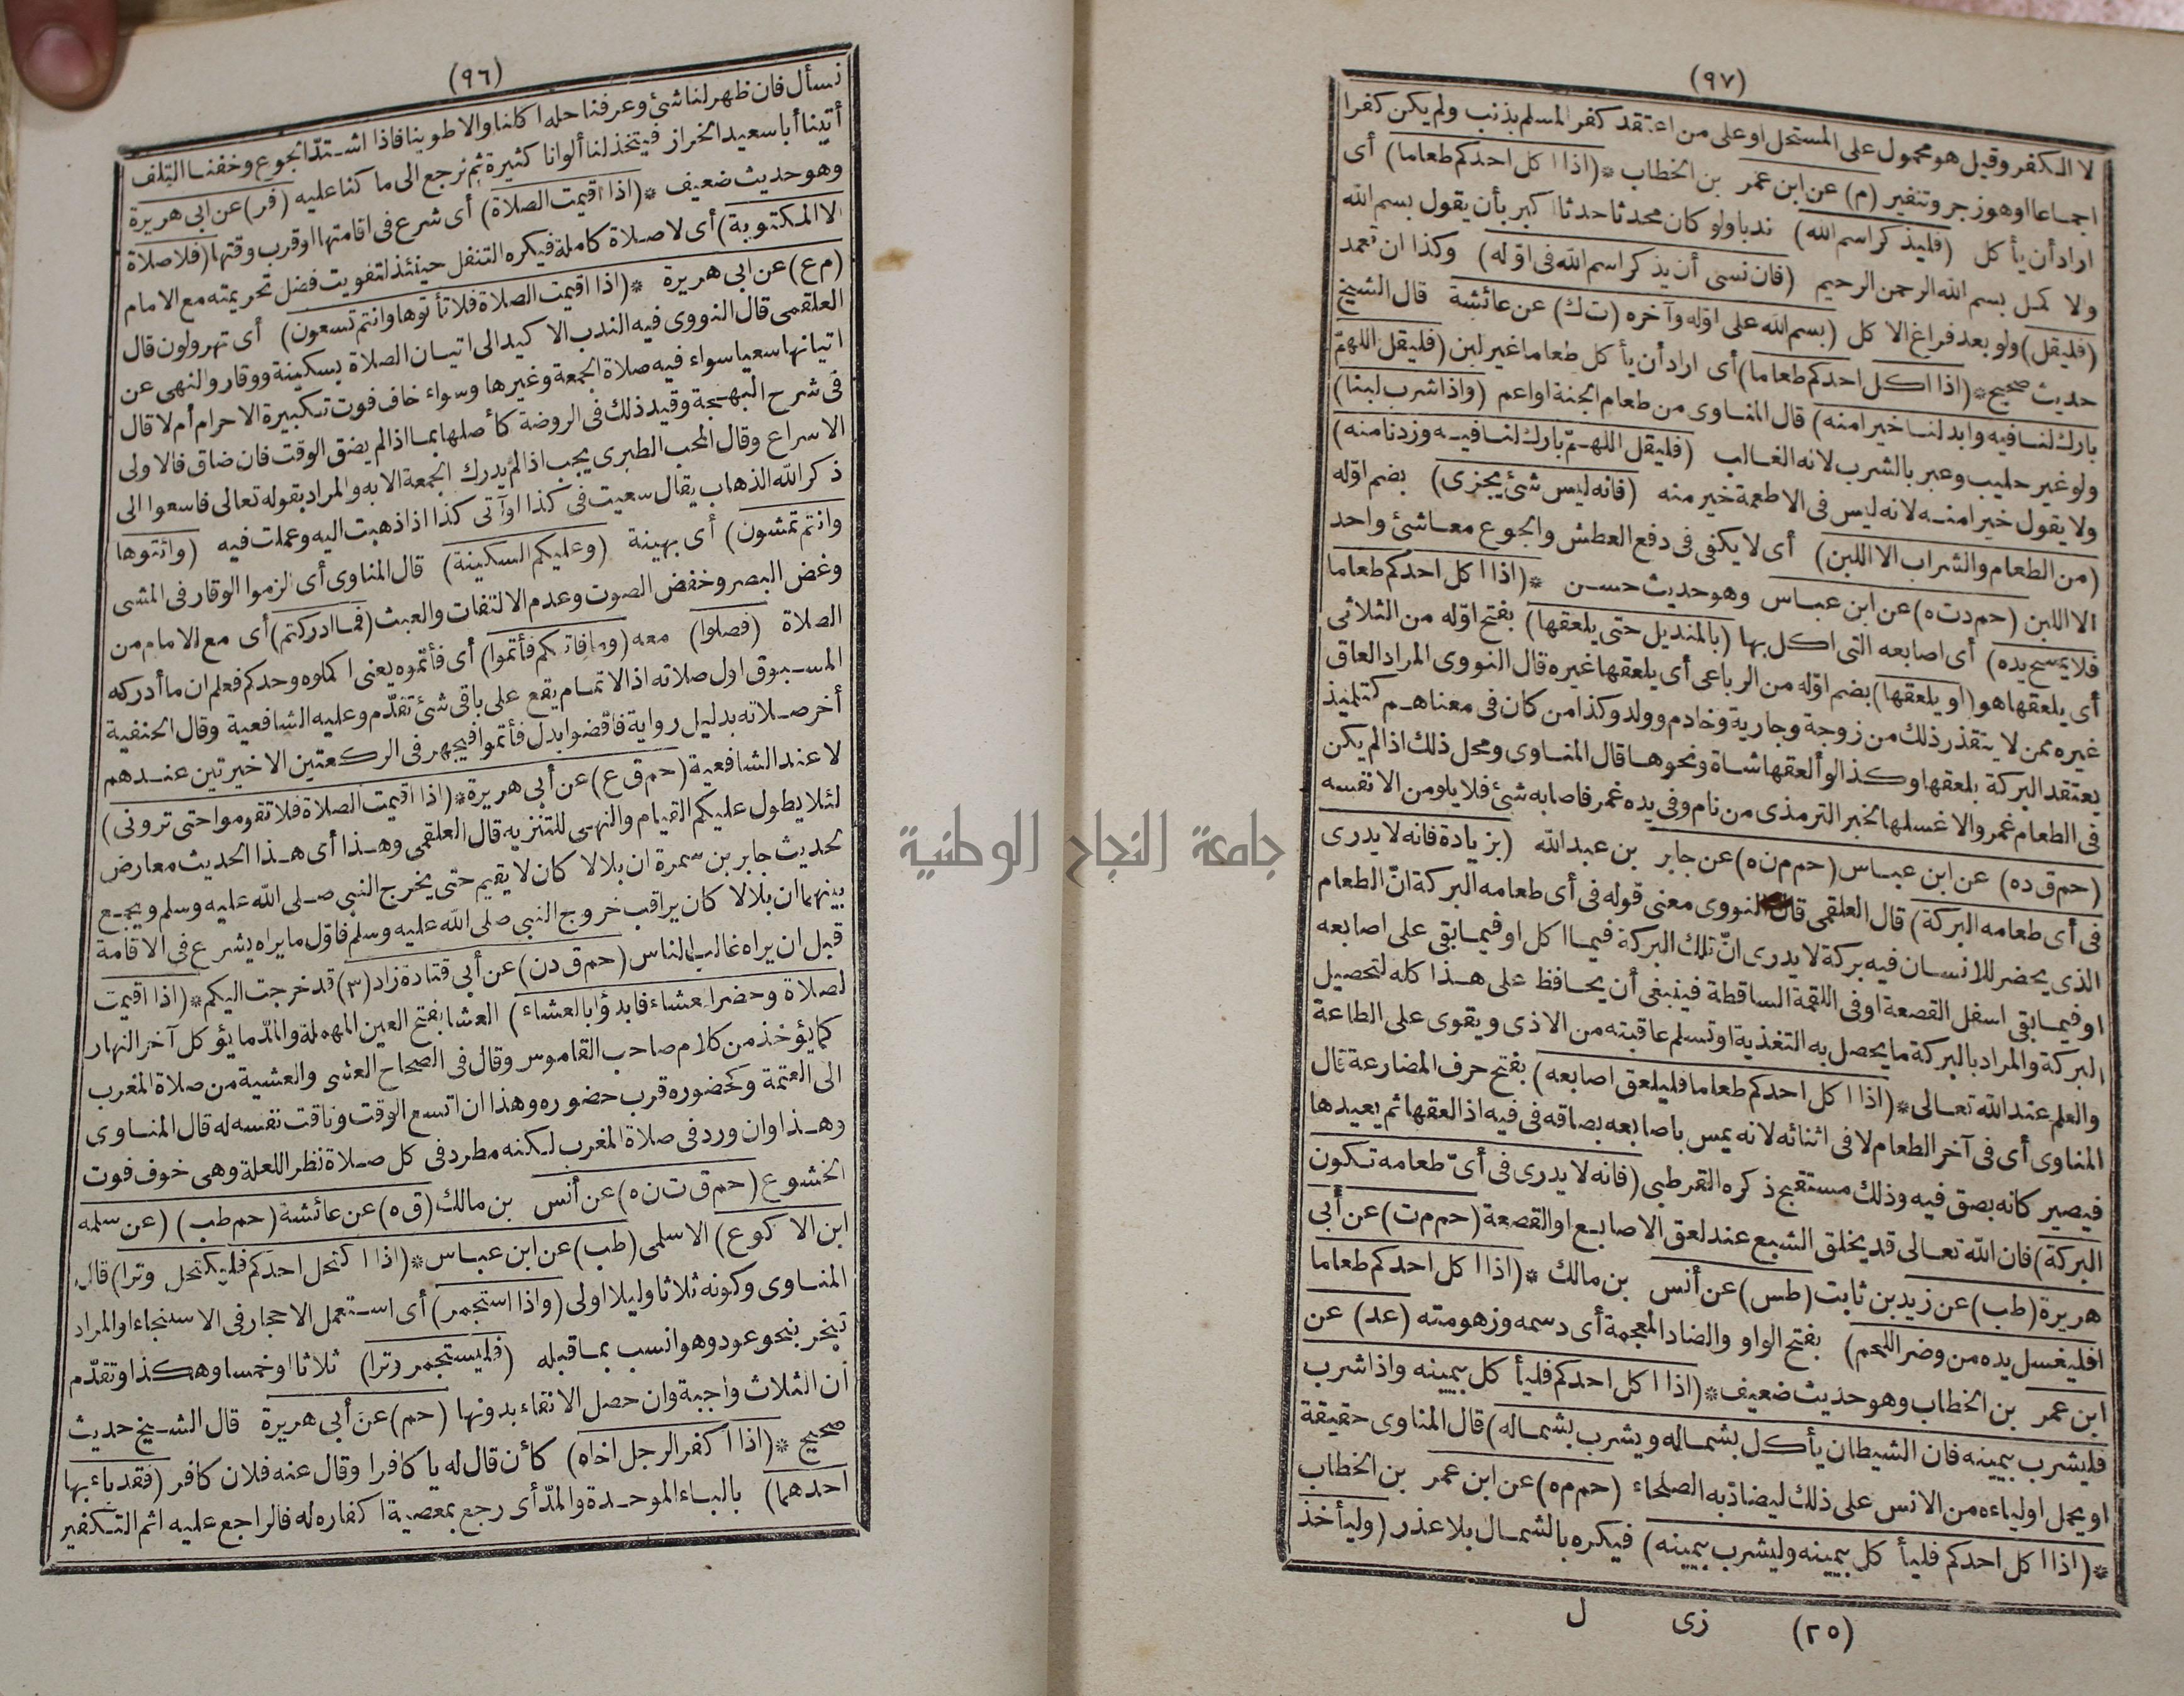 (٩٦)
نسأل فان ظهر لنا شئ وعرفنا حله اكلنا والاطوينا فاذا اشتدّ الجوع وخفنا التلف
أتينا أبا سعيد الخراز فيتخذ لنا ألوانا كثيرة ثم نرجع الى ما كنا عليه (فر) عن ابى هريرة
وهو حديث ضعيف * (اذا اقيمت الصلاة) أى شرع فى اقامتها اوقرب وقتها (فلا صلاة
الا المكتوبة) أى لا صلاة كاملة فيكره التنفل حينئذ لتفويت فضل تحريمته مع الامام
(م ع) عن ابى هريرة * (اذا اقيمت الصلاة فلا تأتوها وانتم تسعون) أى تهرولون قال
العلقمى قال النووى فيه الندب الاكيد الى اتيان الصلاة بسكينة ووقار والنهى عن
اتيانها سعيا سواء فيه صلاة الجمعة وغيرها وسواء خاف فوت تكبيرة الاحرام أم لا قال
فى شرح البهجة وقيد ذلك فى الروضة كأصلها بما اذا لم يضق الوقت فان ضاق فالاولى
الاسراع وقال المحب الطبرى يجب اذا لم يدرك الجمعة الابه والمراد بقوله تعالى فاسعوا الى
ذكر الله الذهاب يقال سعيت فى كذا اوآتى كذا اذا ذهبت اليه وعملت فيه (وائتوها
وانتم تمشون) أى بهينة (وعليكم السكينة) قال المناوى أى الزموا الوقار فى المشى
وغض البصر وخفض الصوت وعدم الالتفات والعبث (فما ادركتم) أى مع الامام من
الصلاة (فصلوا) معه (وما فاتكم فأتموا) أى فأتموه يعنى اكملوه وحدكم فعلم ان ما أدركه
المسبوق اول صلاته اذ الاتمام يقع على باقى شئ تقدّم وعليه الشافعية وقال الحنفية
أخر صلاته بدليل رواية فاقضوا بدل فأتموا فيجهر فى الركعتين الاخيرتين عندهم
لا عند الشافعية (حم ق ع) عن أبى هريرة * (اذا اقيمت الصلاة فلا تقوموا حتى ترونى)
لئلا يطول عليكم القيام والنهى للتنزيه قال العلقمى وهذا أى هذا الحديث معارض
لحديث جابر بن سمرة ان بلالا كان لا يقيم حتى يخرج النبى صلى الله عليه وسلم ويجمع
بينهما ان بلالا كان يراقب خروج النبى صلى الله عليه وسلم فاوّل ما يراه يشرع فى الاقامة
قبل ان يراه غالب الناس (حم ق د ن) عن أبى قتادة زاد (٣) قد خرجت اليكم * (اذا اقيمت
لصلاة وحضر العشاء فابدؤا بالعشاء) العشا بفتح العين المهملة والمدّ ما يؤكل آخر النهار
كما يؤخذ من كلام صاحب القاموس وقال فى الصحاح العشى والعشية من صلاة المغرب
الى العتمة وكحضوره قرب حضوره وهذا ان اتسع الوقت وتاقت نفسه له قال المناوى
وهذا وان ورد فى صلاة المغرب لكنه مطرد فى كل صلاة نظر اللعلة وهى خوف فوت
الخشوع (حم ق ت ن ه) عن أنس بن مالك (ق ه) عن عائشة (حم طب) (عن سلمه
ابن الاكوع) الاسلمى (طب) عن ابن عباس * (اذا اكتحل احدكم فليكتحل وترا) قال
المناوى وكونه ثلاثا وليلا اولى (واذا استجمر) أى استعمل الاحجار فى الاستنجاء او المراد
تبخر بنحو عود وهو انسب بما قبله (فليستجمر وترا) ثلاثا او خمسا وهكذا وتقدّم
أن الثلاث واجبة وان حصل الانقاء بدونها (حم) عن أبى هريرة قال الشيخ حديث
صحيح * (اذا اكفر الرجل اخاه) كأن قال له يا كافرا وقال عنه فلان كافر (فقد باء بها
احدهما) بالباء الموحدة والمدّ أى رجع بمعصية اكفاره له فالراجع عليه اثم التكفير
(٩٧)
لا الكفر وقيل هو محمول على المستحل او على من اعتقد كفر المسلم بذنب ولم يكن كفرا
اجماعا اوهو زجر وتنفير (م) عن ابن عمر بن الخطاب * (اذا اكل احدكم طعاما) أى
اراد أن يأكل (فليذكر اسم الله) ندبا ولو كان محدثا حدثا اكبر بأن يقول بسم الله
ولا كمل بسم الله الرحمن الرحيم (فان نسى أن يذكر اسم الله فى اوّله) وكذا ان تعمد
(فليقل) ولو بعد فراغ الاكل (بسم الله على اوّله وآخره (ت ك) عن عائشة قال الشيخ
حديث صحيح * (اذا اكل احدكم طعاما) أى اراد أن يأكل طعاما غير لبن (فليقل اللهمّ
بارك لنا فيه وابدلنا خيرا منه) قال المناوى من طعام الجنة او اعم (واذا شرب لبنا)
ولو غير حليب وعبر بالشرب لانه الغالب (فليقل اللهمّ بارك لنا فيه وزدنا منه)
ولا يقول خيرا منه لانه ليس فى الاطعمة خير منه (فانه ليس شئ يجزى) بضم اوّله
(من الطعام والشراب الا اللبن) أى لا يكفى فى دفع العطش والجوع معا شئ واحد
الا اللبن (حم د ت ه) عن ابن عباس وهو حديث حسن * (اذا اكل احدكم طعاما
فلا يمسح يده) أى اصابعه التى اكل بها (بالمنديل حتى يلعقها) بفتح اوّله من الثلاثى
أى يلعقها هو (او يلعقها) بضم اوّله من الرباعى أى يلعقها غيره قال النووى المراد العاق
غيره ممن لا يتقذر ذلك من زوجة وجارية وخادم وولد وكذا من كان فى معناهم كتلميذ
يعتقد البركة بلعقها وكذا لو ألعقها شاة ونحوها قال المناوى ومحل ذلك اذا لم يكن
فى الطعام غمر والا غسلها لخبر الترمذى من نام وفى يده غمر فاصابه شئ فلا يلومن الا نفسه
(حم ق د ه) عن ابن عباس (حم م ن ه) عن جابر بن عبد الله (بزيادة فانه لا يدرى
فى أى طعامه البركة) قال العلقمى قال النووى معنى قوله فى أى طعامه البركة انّ الطعام
الذى يحضر للانسان فيه بركة لا يدرى انّ تلك البركة فيما اكل او فيما بقى على اصابعه
او فيما بقى اسفل القصعة او فى اللقمة الساقطة فينبغى أن يحافظ على هذا كله لتحصيل
البركة والمراد بالبركة ما يحصل به التغذية او تسلم عاقبته من الاذى ويقوى على الطاعة
والعلم عند الله تعالى * (اذا اكل احدكم طعاما فليلعق اصابعه) بفتح حرف المضارعة قال
المناوى أى فى آخر الطعام لا فى اثنائه لانه يمس باصابعه بصاقه فى فيه اذا لعقها ثم يعيدها
فيصير كانه بصق فيه وذلك مستقبح ذكره القرطبى (فانه لا يدرى فى أىّ طعامه تكون
البركة) فان الله تعالى قد يخلق الشبع عند لعق الاصابع او القصعة (حم م ت) عن أبى
هريرة (طب) عن زيد بن ثابت (طس) عن أنس بن مالك * (اذا اكل احدكم طعاما
افليغسل يده من وضر اللحم) بفتح الواو والضاد المعجمة أى دسمه وزهومته (عد) عن
ابن عمر بن الخطاب وهو حديث ضعيف * (اذا اكل احدكم فليأكل بيمينه واذا شرب
فليشرب بيمينه فان الشيطان يأكل بشماله ويشرب بشماله) قال المناوى حقيقة
او يحمل اولياءه من الانس على ذلك ليضادّ به الصلحاء (حم م ه) عن ابن عمر بن الخطاب
* (اذا اكل احدكم فليأكل بيمينه وليشرب بيمينه) فيكره بالشمال بلا عذر (وليأخذ
(٢٥) زى ل
جامعة النجاح الوطنية